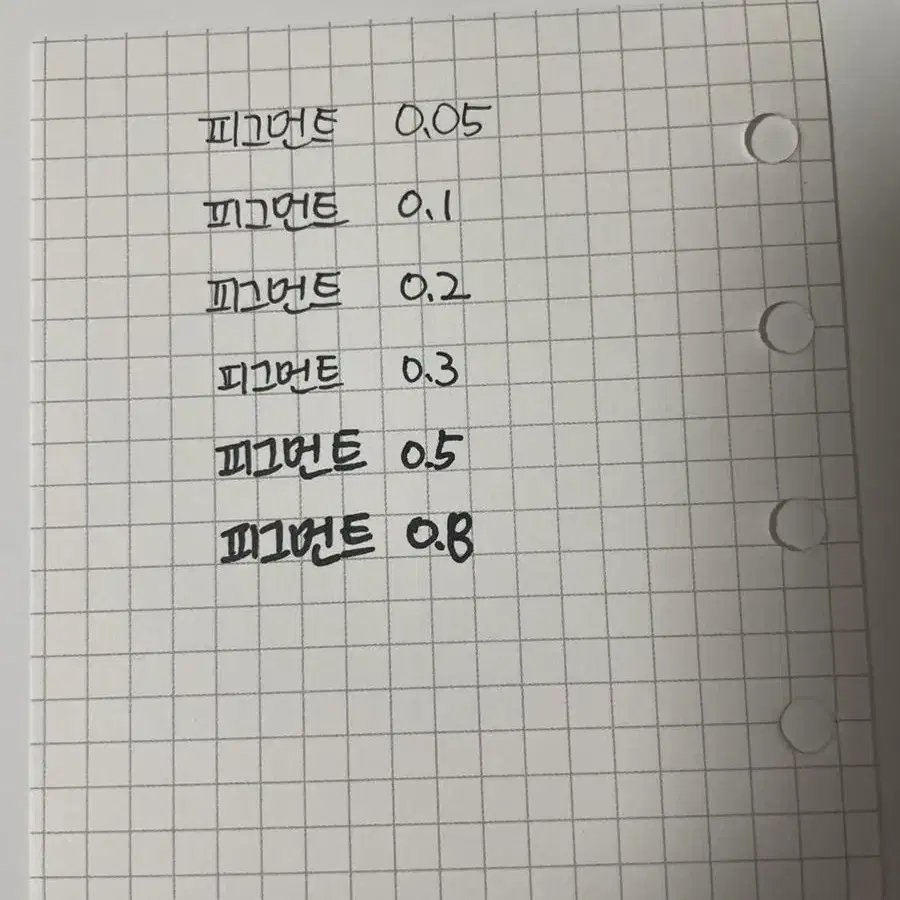 피그먼트 0.05
피그먼트 0.1
피그먼트 0.2
피그먼트 0.3
피그먼트 0.5
피그먼트 0.8